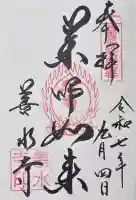 奉拝
薬師如来
善水寺
令和七年
五月四日